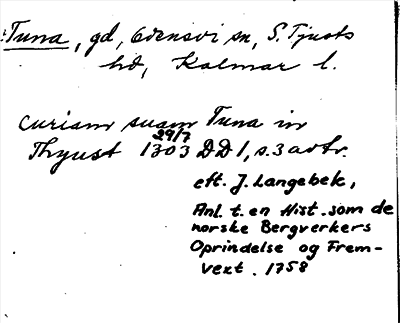 Tuna, gd, Odensvi sn, S. Tjusts
hd, Kalmar l.
curiam suam Tuna in
29/7
Thyust 1303 DD 1, s. 3 avtr.
eft. J. Langebek,
Anl. t. en Hist. som de
norske Bergverkers
Oprindelse og Frem-
vext. 1758